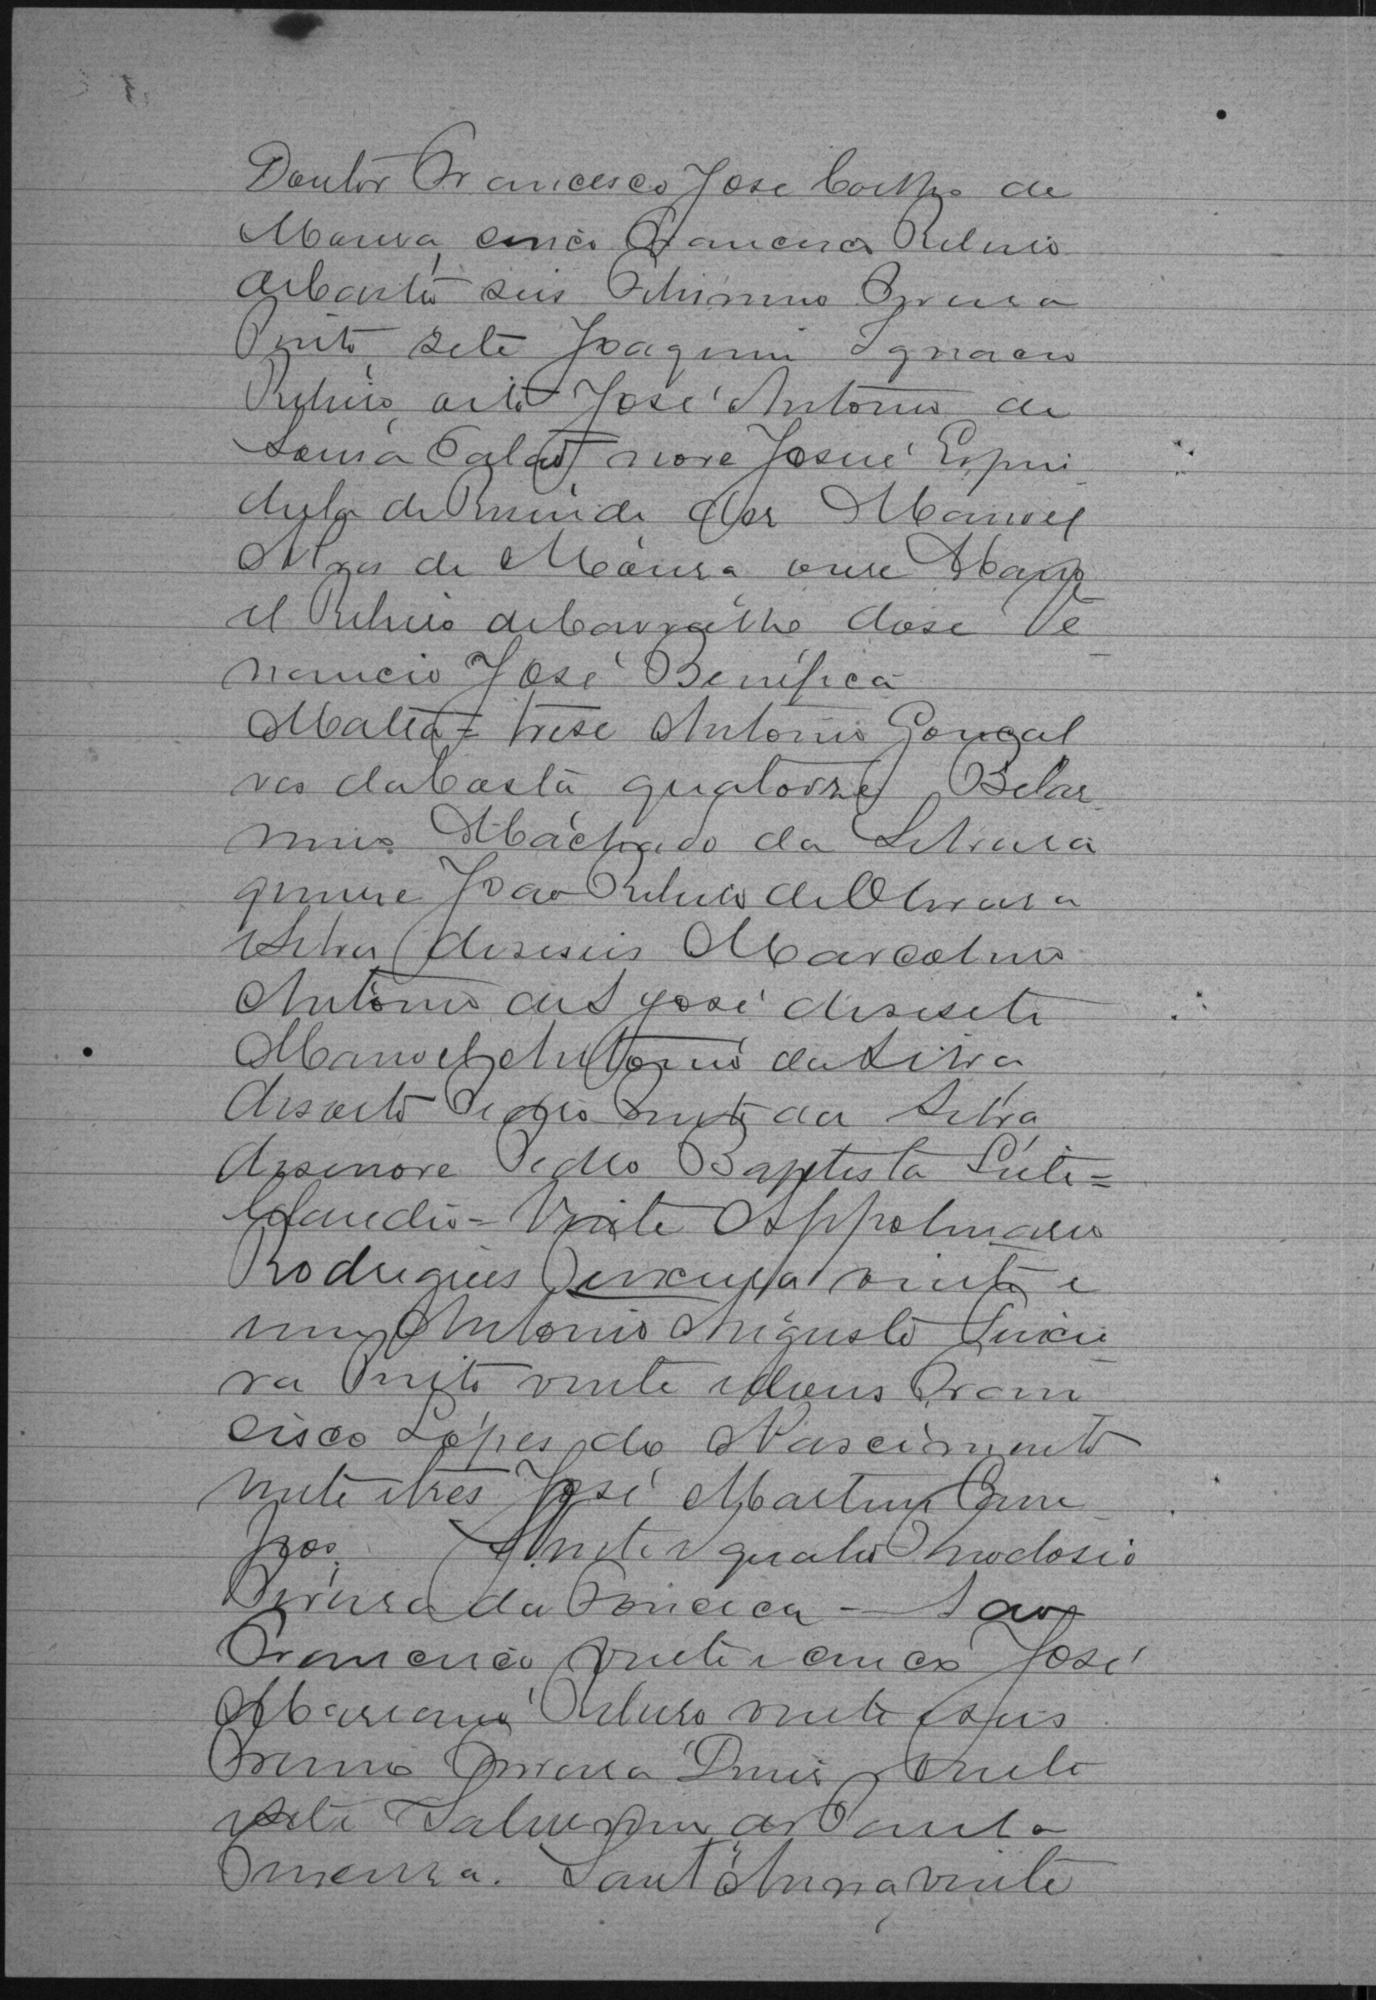 Doutor Francisco José Coelho de
Moura, cinco Francisco Ribeiro
de Castro seis Felisimino Pereira
Pinto, sete Joaquim Ignacio
Ribeiro, oito José Antonio de
Sousa Calado, nove Josué Espin
dula de dez Manoel
Alves de Moura onze Mano
el Ribeiro de Carvalho dose Ve
nancio José Benifica
Malta = trese Antonio Gonçal
ves da Costa quatorze Belar
mino Machado da Silveira
quinze João Ribeiro de Oliveira
e Silva deseseis Marcolino
Antonio de S José desesete
Manoel Antonio da Silva
desoito Pedro Pinto da Silva
desenove Pedro Baptista Leite =
Claudio = Vinte Appolinario
Rodrigues Pereira vinte e
um Antonio Augusto Teixei
ra Pinto vinte e dous Fran
cisco Lopes do Nascimento
vinte e tres José Martins Cam
pos. Vinte e quatro Theodosio
Pereira da Fonceca - São
Francisco vinte e cinco José
Mariano Ribeiro vinte e seis
Firmino Pereira Diniz Vinte
e sete de Paula
. Sant'Anna vinte